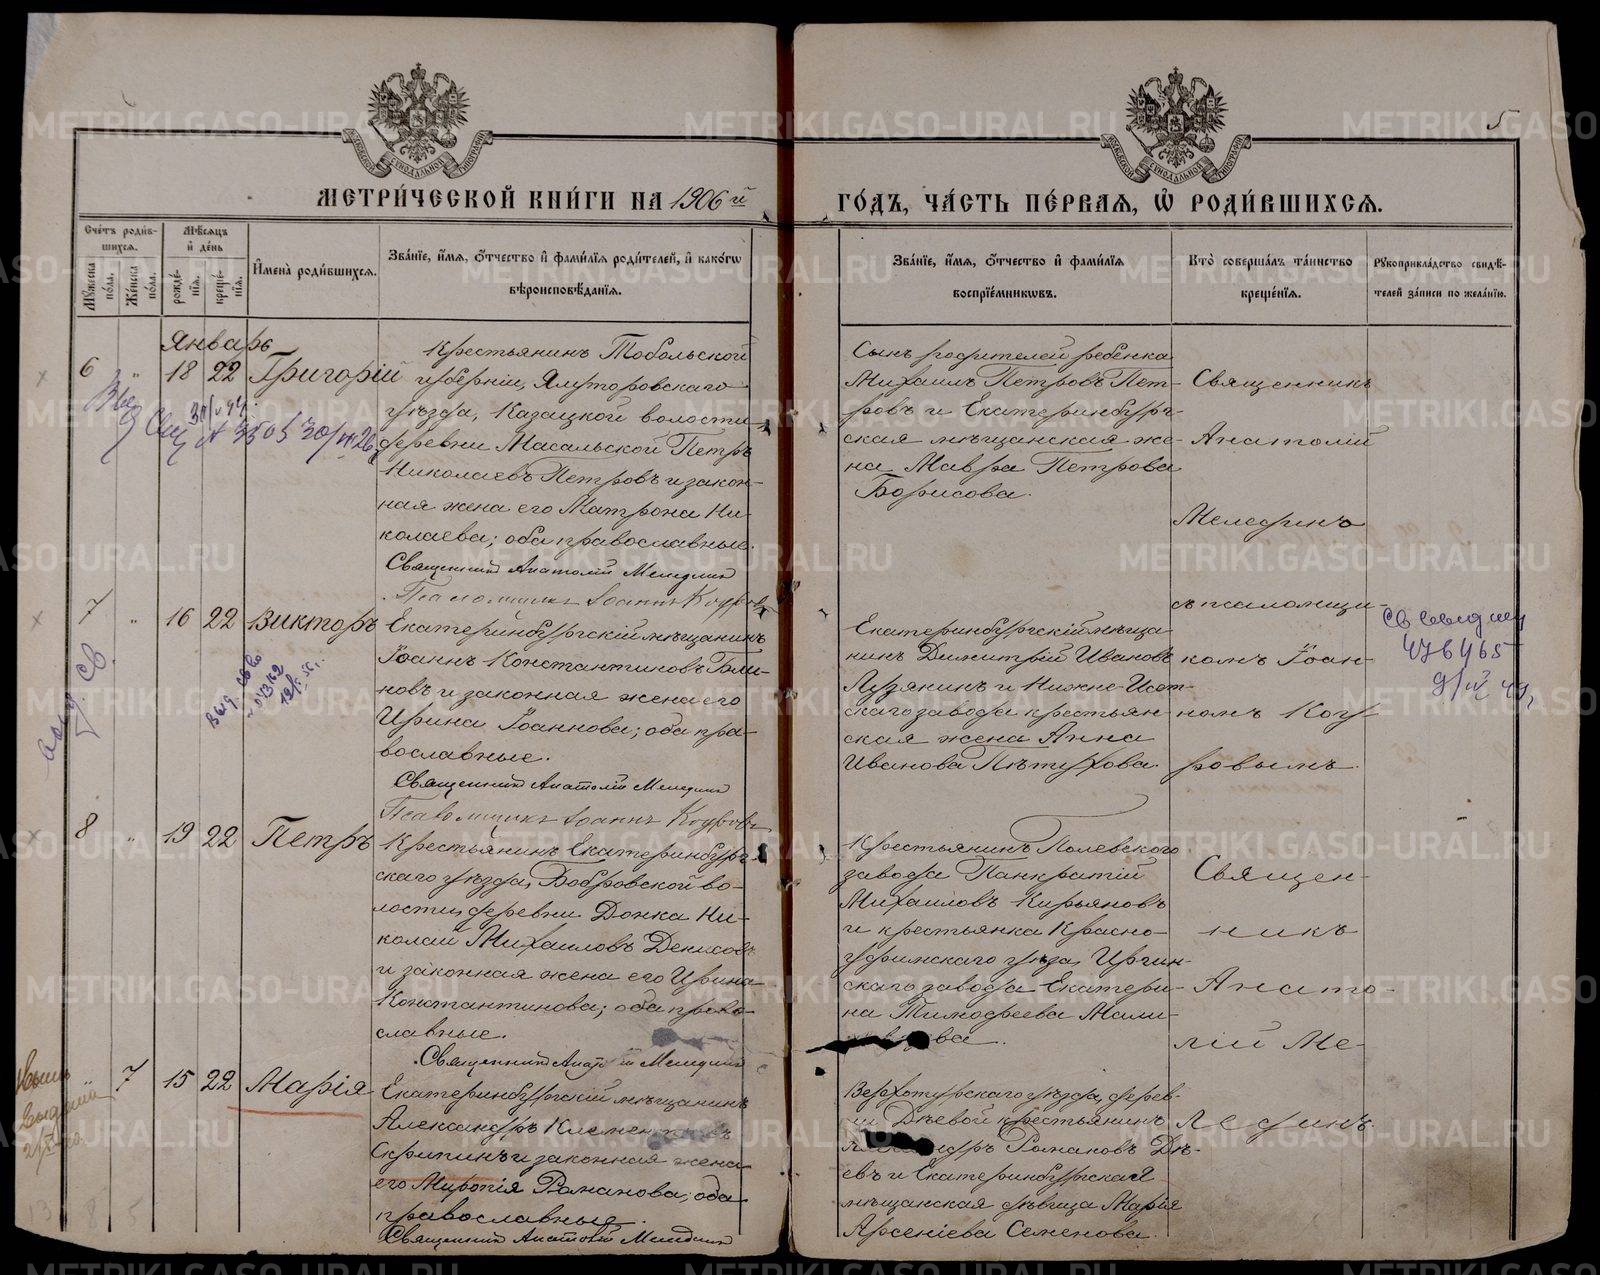 5
МЕТРИ́ЧЕСКОЙ КНИ́ГИ НА 1906 й
ГО́ДЪ, ЧА́СТЬ ПЕ́РВАѦ, Ѽ РОДИ́ВШИХСѦ.
Сче́тъ роди́в-
шихся.
Мѣ́сяцъ
и де́нь
Мꙋ́жеска по́ла.
Же́нска по́ла.
рожде́-
нїѧ.
креще́-
нїѧ.
И҆мена̀ роди́вшихсѧ.
Зва́нїе, и҆́мѧ, ѻ҆́тчество и҆ фами́лїѧ роди́телей, и҆ како́гѡ
вѣроисповѣ́данїѧ.
Зва́нїе, и҆́мѧ, ѻ҆́тчество и҆ фами́лїѧ
воспрїе́мникѡвъ.
Кто̀ соверша́лъ та́инство
креще́нїѧ.
Рꙋкоприкла́дство свидѣ́-
телей за́писи по жела́нїю.
Январь
6 " 18 22 Григорій
Крестьянинъ Тобольской
губерніи, Ялуторовскаго
уѣзда, Казацкой волости,
деревни Масальской Петръ
Николаевъ Петровъ и закон-
ная жена его Матрона Ни-
колаева; оба православные.
Священникъ Анатолій Меледин
Псаломщикъ Іоаннъ Кодровъ
Сынъ родителей ребенка
Михаилъ Петровъ Пет-
ровъ и Екатеринбург-
ская мѣщанская же-
на Мавра Петрова
Борисова.
Священникъ
Анатолій
Меледринъ
съ псаломщи-
комъ Іоан-
номъ Код-
ровымъ.
7 " 16 22 Викторъ
Екатеринбургскій мѣщанинъ
Іоаннъ Константиновъ Бли-
новъ и законная жена его
Ирина Іоаннова; оба пра-
вославные.
Священникъ Анатолій Меледин
Псаломщикъ Іоаннъ Кодровъ
Екатеринбургскій мѣща-
нинъ Димитрій Ивановъ
Лузянинъ и Нижне-Исет-
скаго завода крестьян-
ская жена Анна
Иванова Пѣтухова.
476465
8 " 19 22 Петръ
Крестьянинъ Екатеринбург-
скаго уѣзда, Бобровской во-
лости, деревни Донка Ни-
колай Михаиловъ Денисовъ
и законная жена его Ирина
Константинова; оба право-
славные.
Священникъ Меледин
Крестьянинъ Полевскаго
завода Панкратій
Михаиловъ Кирьяновъ
и крестьянка Красно-
уфимскаго уѣзда, Иргин-
скаго завода Екатери-
на Тимофеева Мали-
Священ-
никъ
Анато-
лій Ме-
лединъ.
" 7 15 22 Марія
Екатеринбургскій мѣщанинъ
Александръ Климентьевъ
Скрипинъ и законная жена
его Миропія Романова; оба
православные.
Священникъ Анатолій Меледин
Верхотурскаго уѣзда, дерев-
ни Дѣевой крестьянинъ
Романовъ Дѣ-
евъ и Екатеринбургская
мѣщанская дѣвица Марія
Арсеніева Семенова.
METRIKI.GASO-URAL.RU